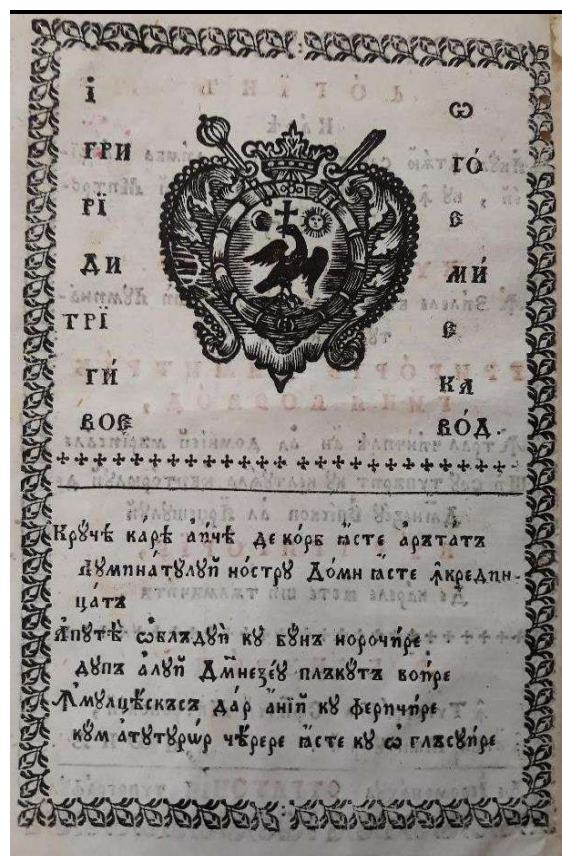 І Ѡ
ГРИ ГО́
РЇ Є
ДИ МИ́
ТРЇ Є
ГИ́ КА
ВОЄ ВО́Д.
Крꙋ́чѣ ка́рѣ аи́чѣ де ко́рб ꙗ́сте арътатъ
Лꙋминатꙋлꙋй но́стрꙋ До́мн ꙗ́сте ꙟкредин-
ца́тъ
Апꙋтѣ̀ ѡблъдꙋи́ кꙋ бꙋ́нъ норочи́ре
дꙋпъ а́лꙋй Дⷭмнезе́ꙋ плъкꙋ́тъ вои́ре
Ꙟмꙋлце́скъсъ да́р а́нїй кꙋ феричи́ре
кꙋм атꙋтꙋрѡ́р че́рере ꙗ́сте кꙋ ѡ҆ глъсꙋи́ре